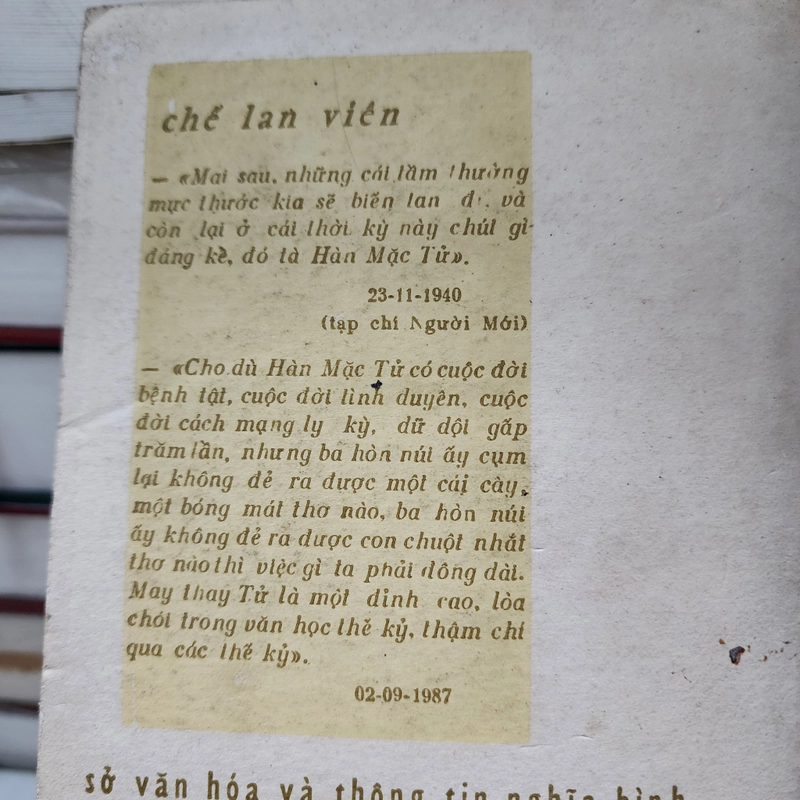 chế lan viên
— «Mai sau, những cái tầm thường
mực thước kia sẽ biến tan đi, và
còn lại ở cái thời kỳ này chút gì
đáng kể, đó là Hàn Mặc Tử».
23-11-1940
(tạp chí Người Mới)
— «Cho dù Hàn Mặc Tử có cuộc đời
bệnh tật, cuộc đời tình duyên, cuộc
đời cách mạng ly kỳ, dữ dội gấp
trăm lần, nhưng ba hòn núi ấy cụm
lại không đẻ ra được một cái cây,
một bóng mát thơ nào, ba hòn núi
ấy không đẻ ra được con chuột nhắt
thơ nào thì việc gì ta phải dông dài.
May thay Tử là một đỉnh cao, lòa
chói trong văn học thế kỷ, thậm chí
qua các thế kỷ».
02-09-1987
sở văn hóa và thông tin nghĩa bình